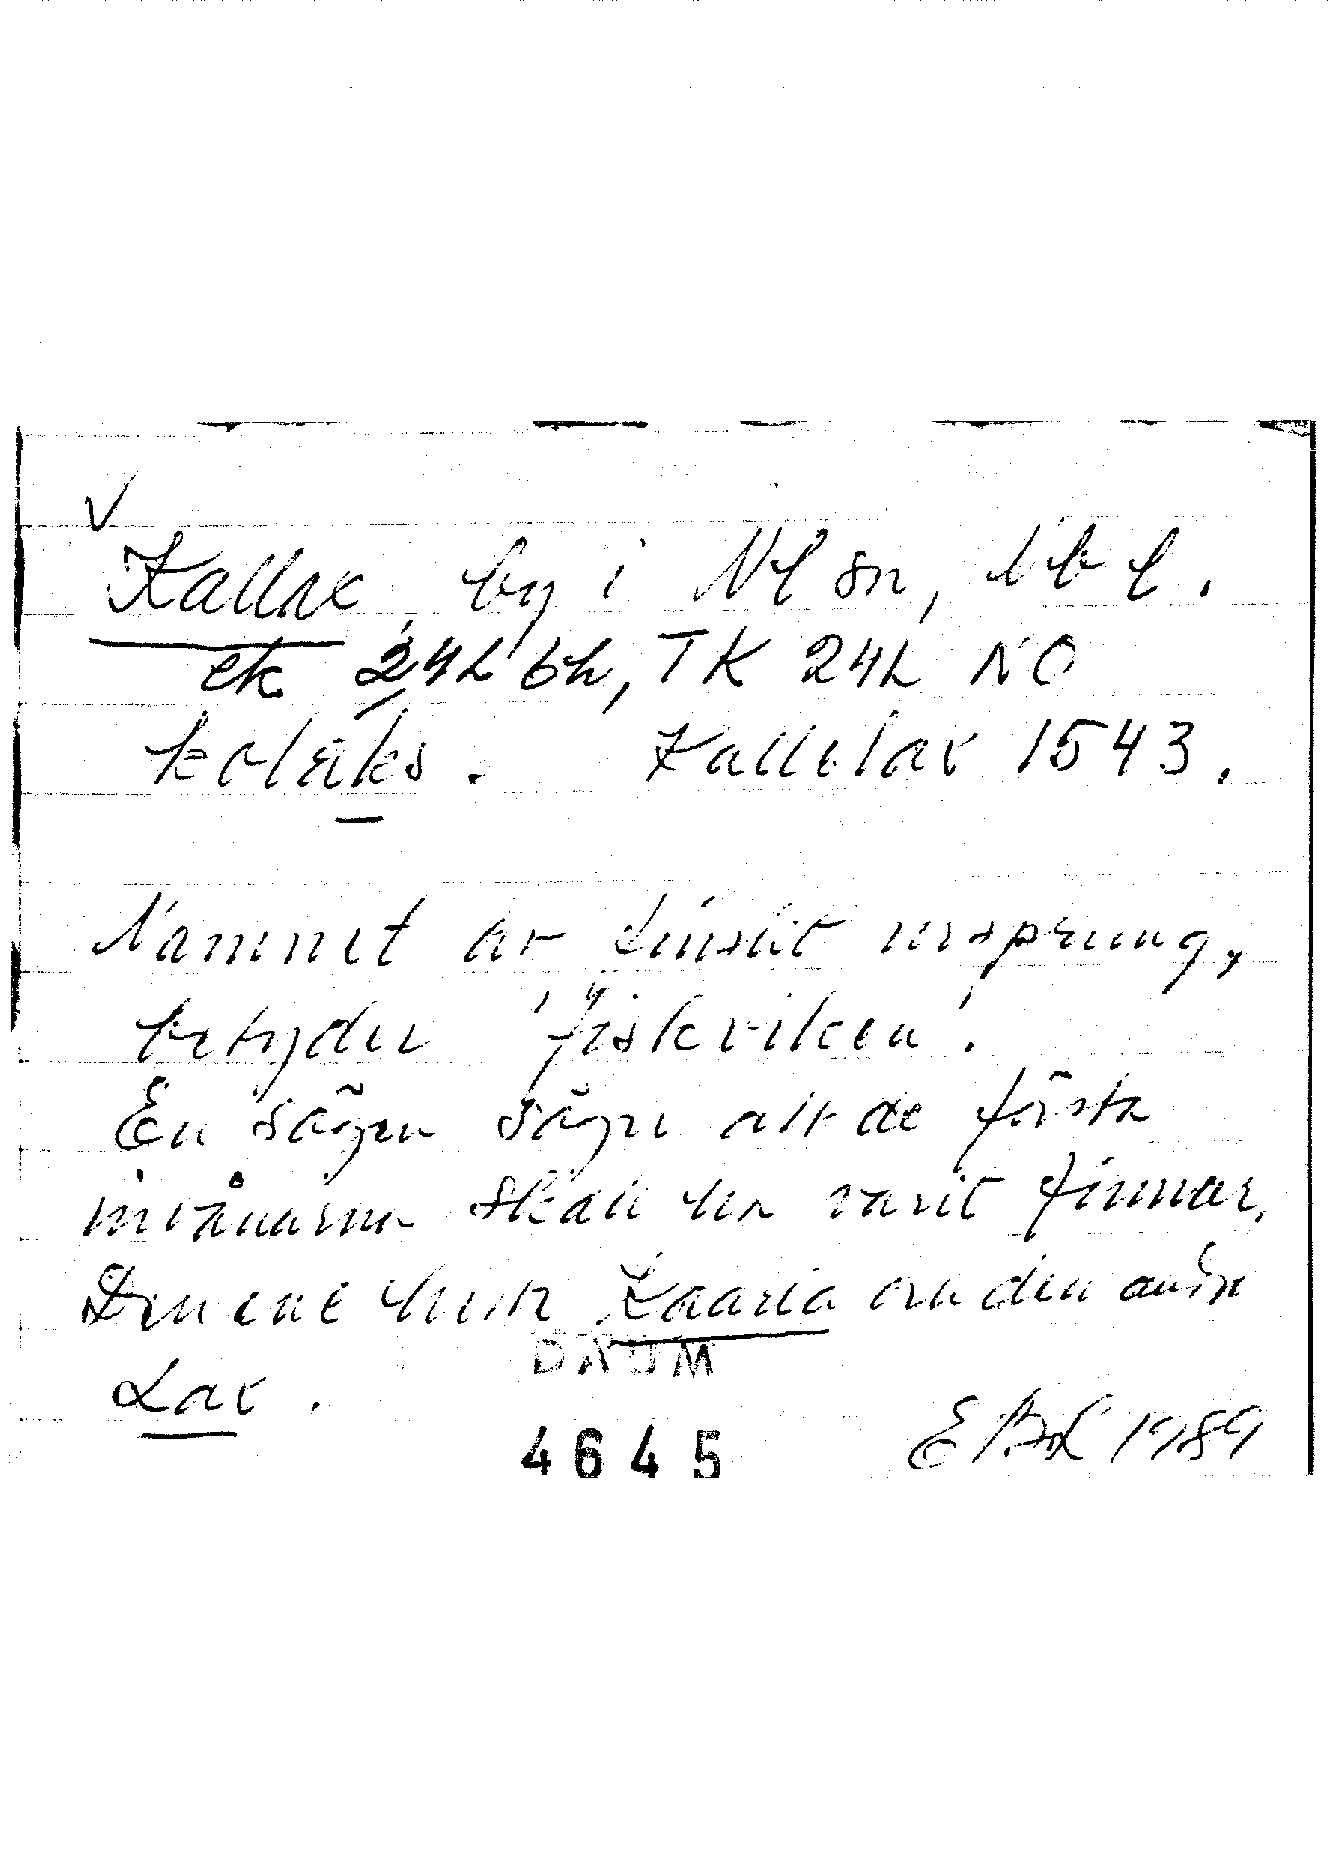 Kallax, by i Nl sn, Nbl.
ek 24L 6h, TK 24L NO
kaläks. Kallelax 1543.
Namnet av finskt ursprung,
betyder 'fiskviken'.
En sägen säger att de första
invånarna skall ha varit finnar.
Den ene hette Kaaria och den andre
Lax.
DAUM
4645
1989